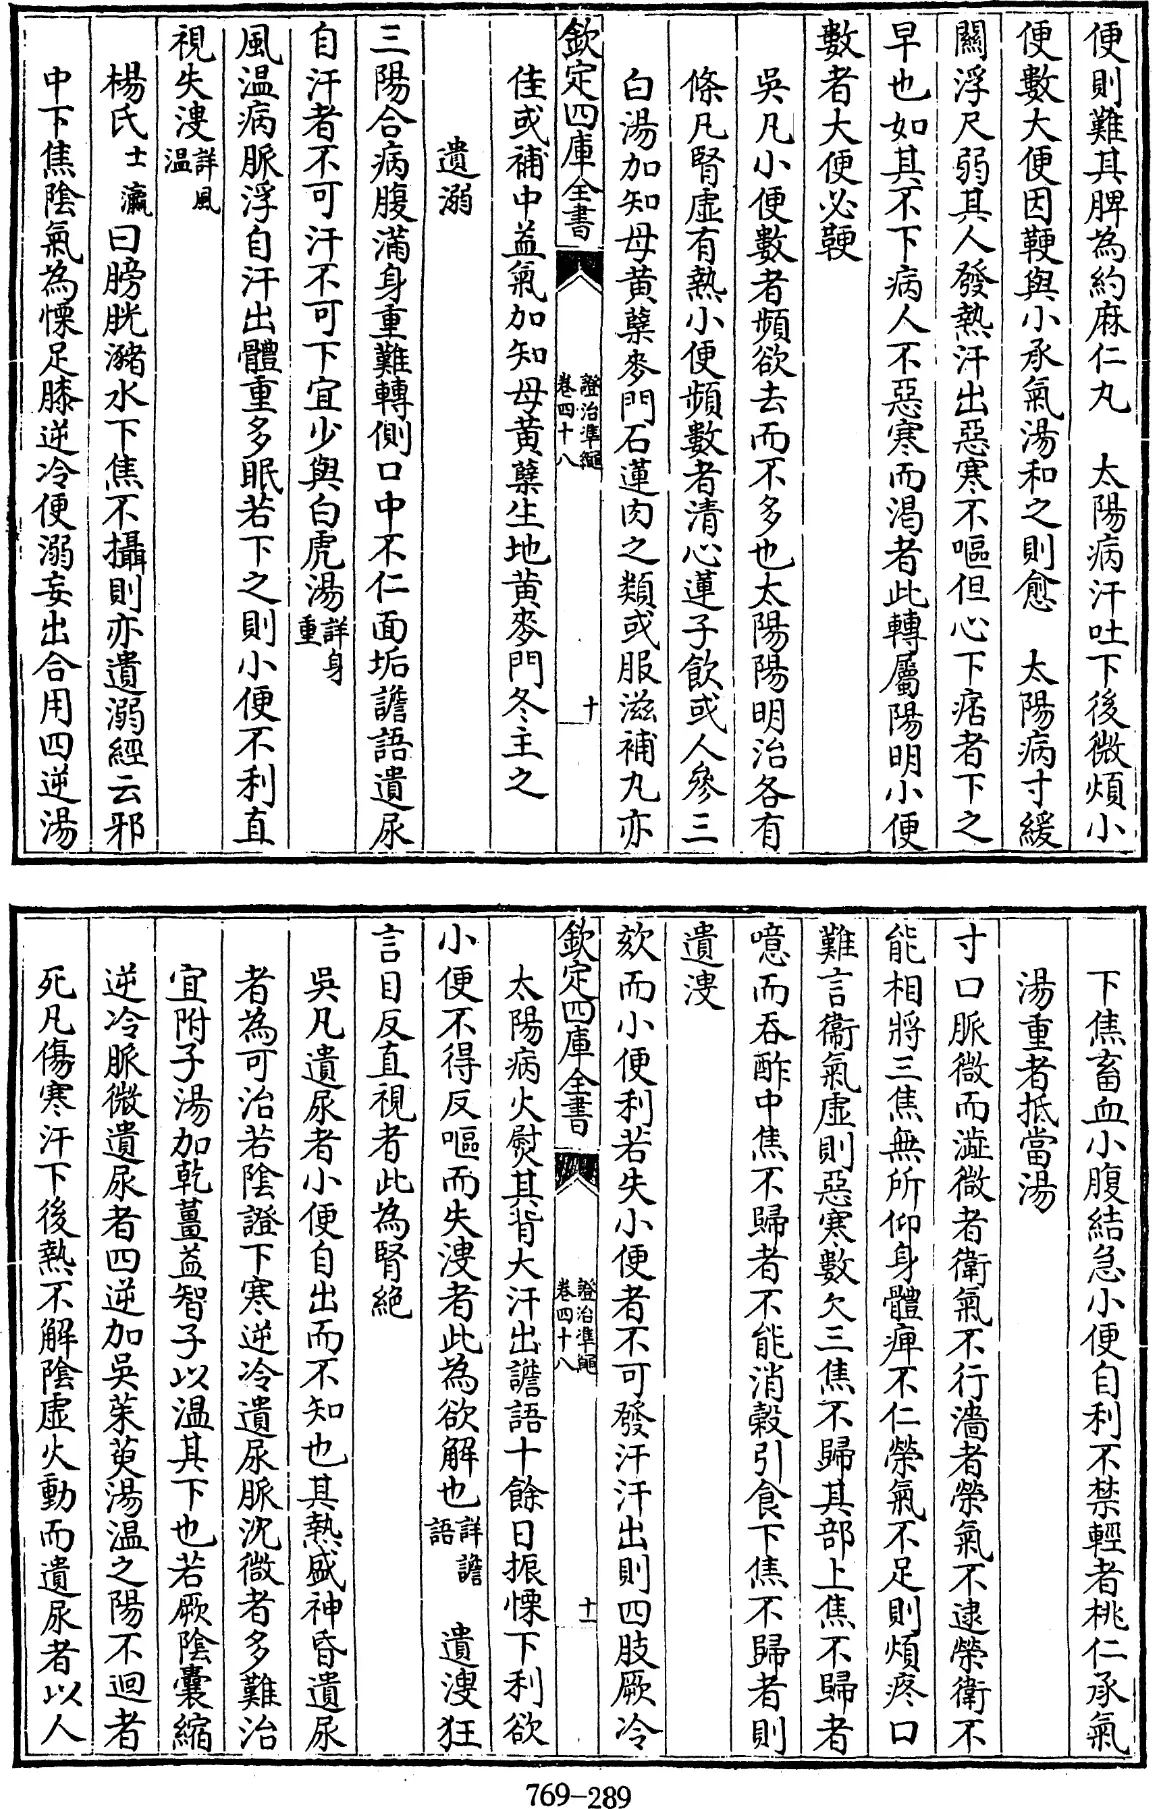 便則難其脾為約麻仁丸　太陽病汗吐下後微煩小
便數大便因鞕與小承氣湯和之則愈　太陽病寸緩
關浮尺弱其人發熱汗出惡寒不嘔但心下痞者下之
早也如其不下病人不惡寒而渴者此轉屬陽明小便
數者大便必鞕
吳凡小便數者頻欲去而不多也太陽陽明治各有
條凡腎虛有熱小便頻數者清心蓮子飲或人參三
白湯加知母黃蘗麥門石蓮肉之類或服滋補丸亦
欽定四庫全書
證治準繩
卷四十八
十
佳或補中益氣加知母黃蘗生地黃麥門冬主之
遺溺
三陽合病腹滿身重難轉側口中不仁面垢譫語遺尿
自汗者不可汗不可下宜少與白虎湯詳身重
風温病脈浮自汗出體重多眠若下之則小便不利直
視失溲詳風温
楊氏士瀛曰膀胱瀦水下焦不攝則亦遺溺經云邪
中下焦陰氣為慄足膝逆冷便溺妄出合用四逆湯
下焦畜血小腹結急小便自利不禁輕者桃仁承氣
湯重者抵當湯
寸口脈微而澁微者衛氣不行濇者榮氣不逮榮衛不
能相將三焦無所仰身體痺不仁榮氣不足則煩疼口
難言衛氣虛則惡寒數欠三焦不歸其部上焦不歸者
噫而吞酢中焦不歸者不能消穀引食下焦不歸者則
遺溲
欬而小便利若失小便者不可發汗汗出則四肢厥冷
欽定四庫全書
證治準繩
卷四十八
十一
太陽病火熨其背大汗出譫語十餘日振慄下利欲
小便不得反嘔而失溲者此為欲解也詳譫語　遺溲狂
言目反直視者此為腎絶
吳凡遺尿者小便自出而不知也其熱盛神昏遺尿
者為可治若陰證下寒逆冷遺尿脈沈微者多難治
宜附子湯加乾薑益智子以温其下也若厥陰囊縮
逆冷脈微遺尿者四逆加吳茱萸湯温之陽不迴者
死凡傷寒汗下後熱不解陰虛火動而遺尿者以人
769-289